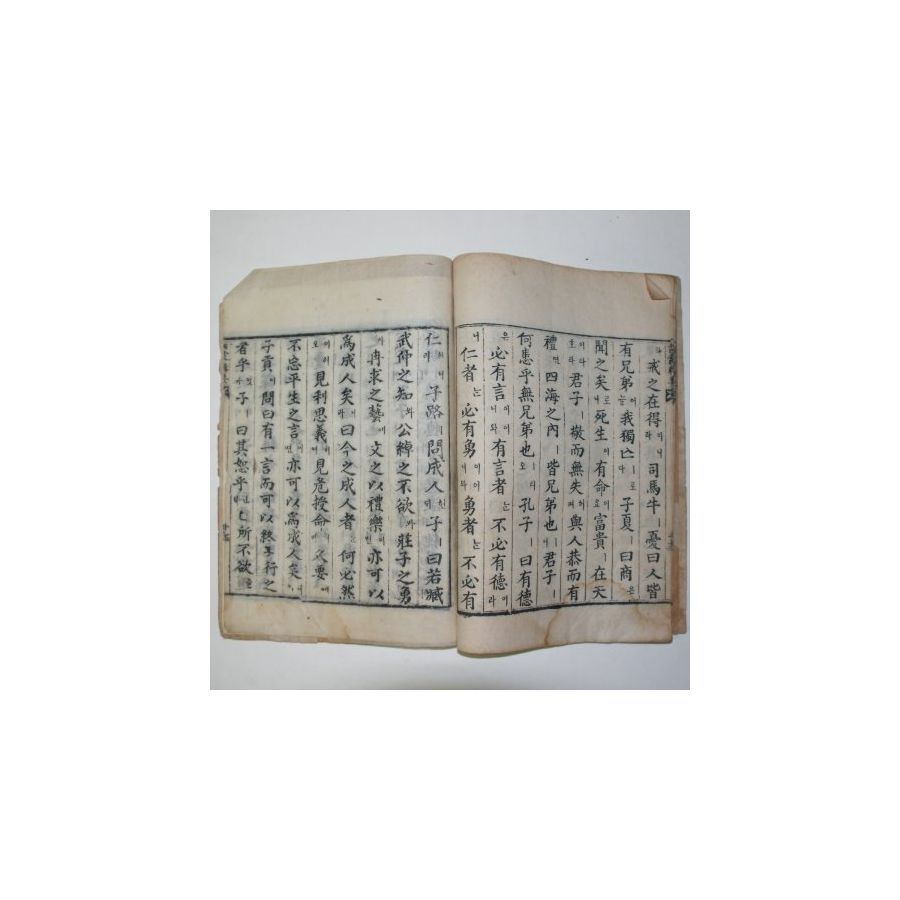 戒之在得이니라 司馬牛ㅣ 憂曰人皆
有兄弟늘 我獨亡로다 子夏ㅣ 曰商은
聞之矣로니 死生이 有命이오 富貴ㅣ 在天
이라호라 君子ㅣ 敬而無失며 與人恭而有
禮면 四海之內ㅣ 皆兄弟也ㅣ니 君子ㅣ
何患乎無兄弟也ㅣ리오 孔子ㅣ 曰有德
은 必有言이어니와 有言者는 不必有德이라
니 仁者는 必有勇이어니와 勇者는 不必有
仁이니라 子路ㅣ問成人ᄒᆞᆫ대 子ㅣ曰若臧
武仲之知와 公綽之不欲과 莊子之勇
과 冉求之藝에 文之以禮樂이면 亦可以
爲成人矣니라 曰今之成人者는 何必然
이리오 見利思義며 見危授命며 久要에
不忘平生之言이면 亦可以爲成人矣니라
子貢이 問曰有一言而可以終身行之
者乎잇가 子ㅣ曰其恕乎뎌 己所不欲을